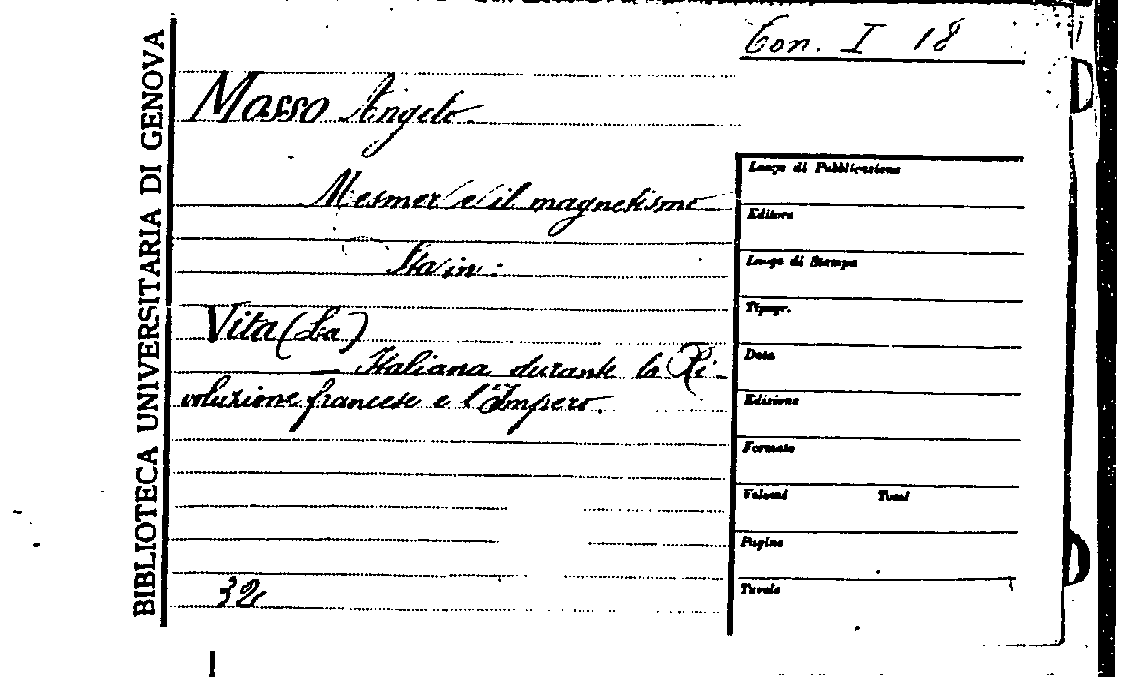 BIBLIOTECA UNIVERSITARIA DI GENOVA
Con. I 18
Masso Angelo.
Mesmer e il magnetismo
Sta in:
Vita (La)
— Italiana durante la Ri-
voluzione francese e l'Impero.
32
Luogo di Pubblicazione
Editore
Luogo di Stampa
Tipogr.
Data
Edizione
Formato
Volumi Tomi
Pagine
Tavole